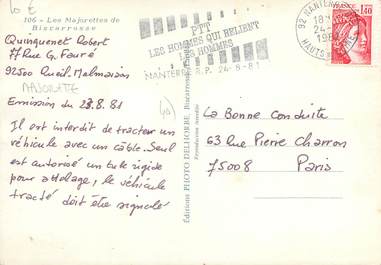 10 €
106 - Les Majorettes de
Biscarrosse
Quinquenet Robert
77 Rue G. Fauré
92500 Rueil. Malmaison
MAJORETTE
Emission du 23.8.81
Il est interdit de tracter un
véhicule avec un câble. Seul
est autorisé un tube rigide
pour attelage, le véhicule
tracté doit être signalé
Editions PHOTO DELHORBE, Biscarrosse
Reproduction interdite
PTT
LES HOMMES QUI RELIENT
LES HOMMES
NANTERRE R.P. 24-8-81
92 NANTERRE
18H
24
198
HAUTS
1,40
La Bonne Conduite
63 Rue Pierre Charron
75008
Paris